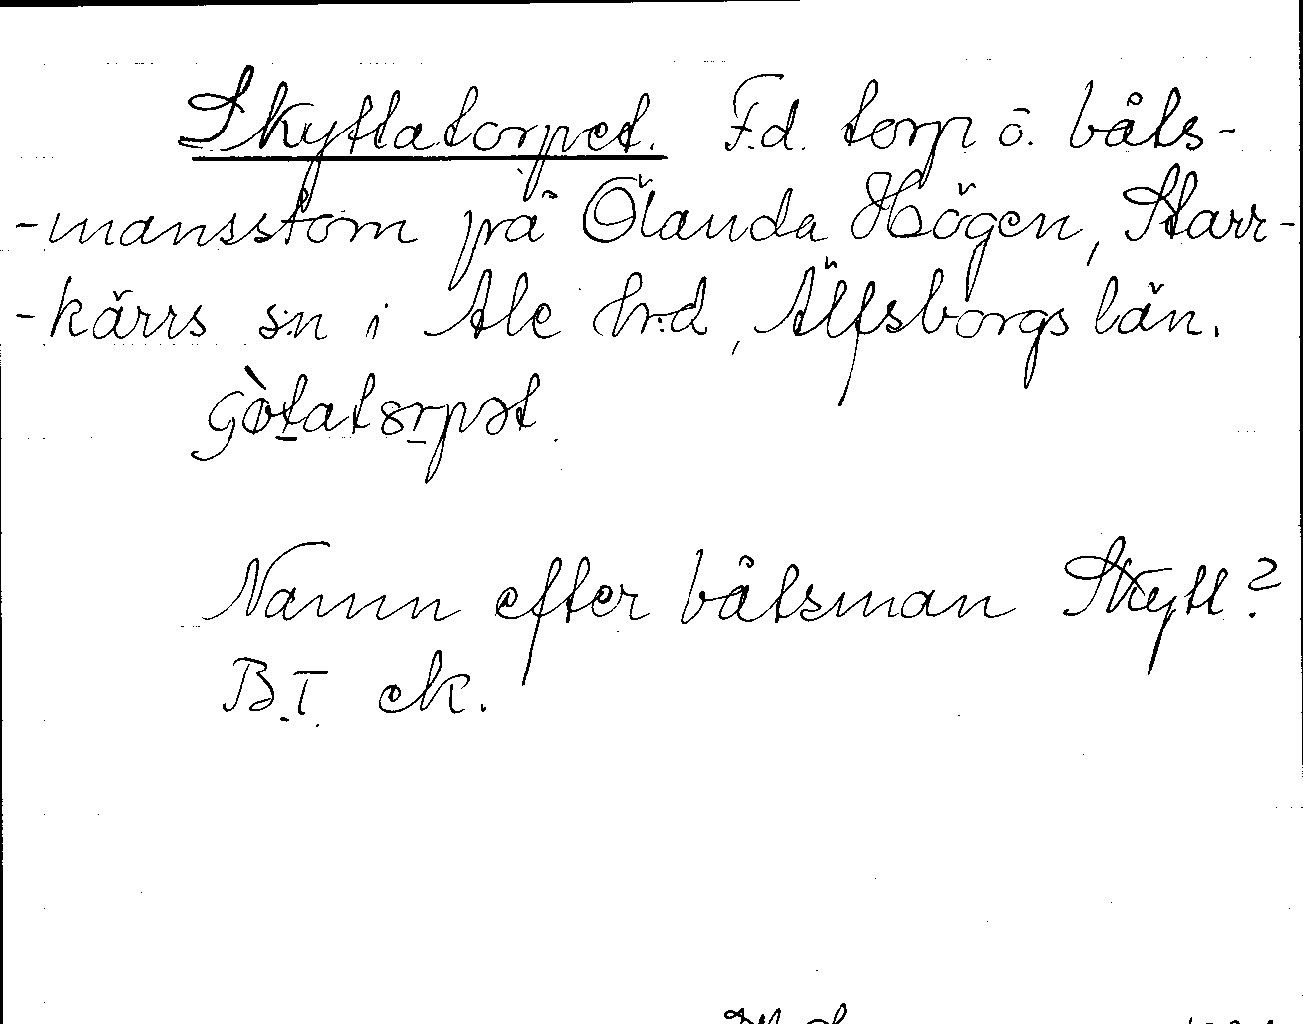 Skyttatorpet. F.d. torp o. båts-
-mansstom på Ölanda Högen, Starr-
-kärrs s:n i Ale h:d, Älfsborgs län.
Namn efter båtsman Skytt?
B.T. ek.